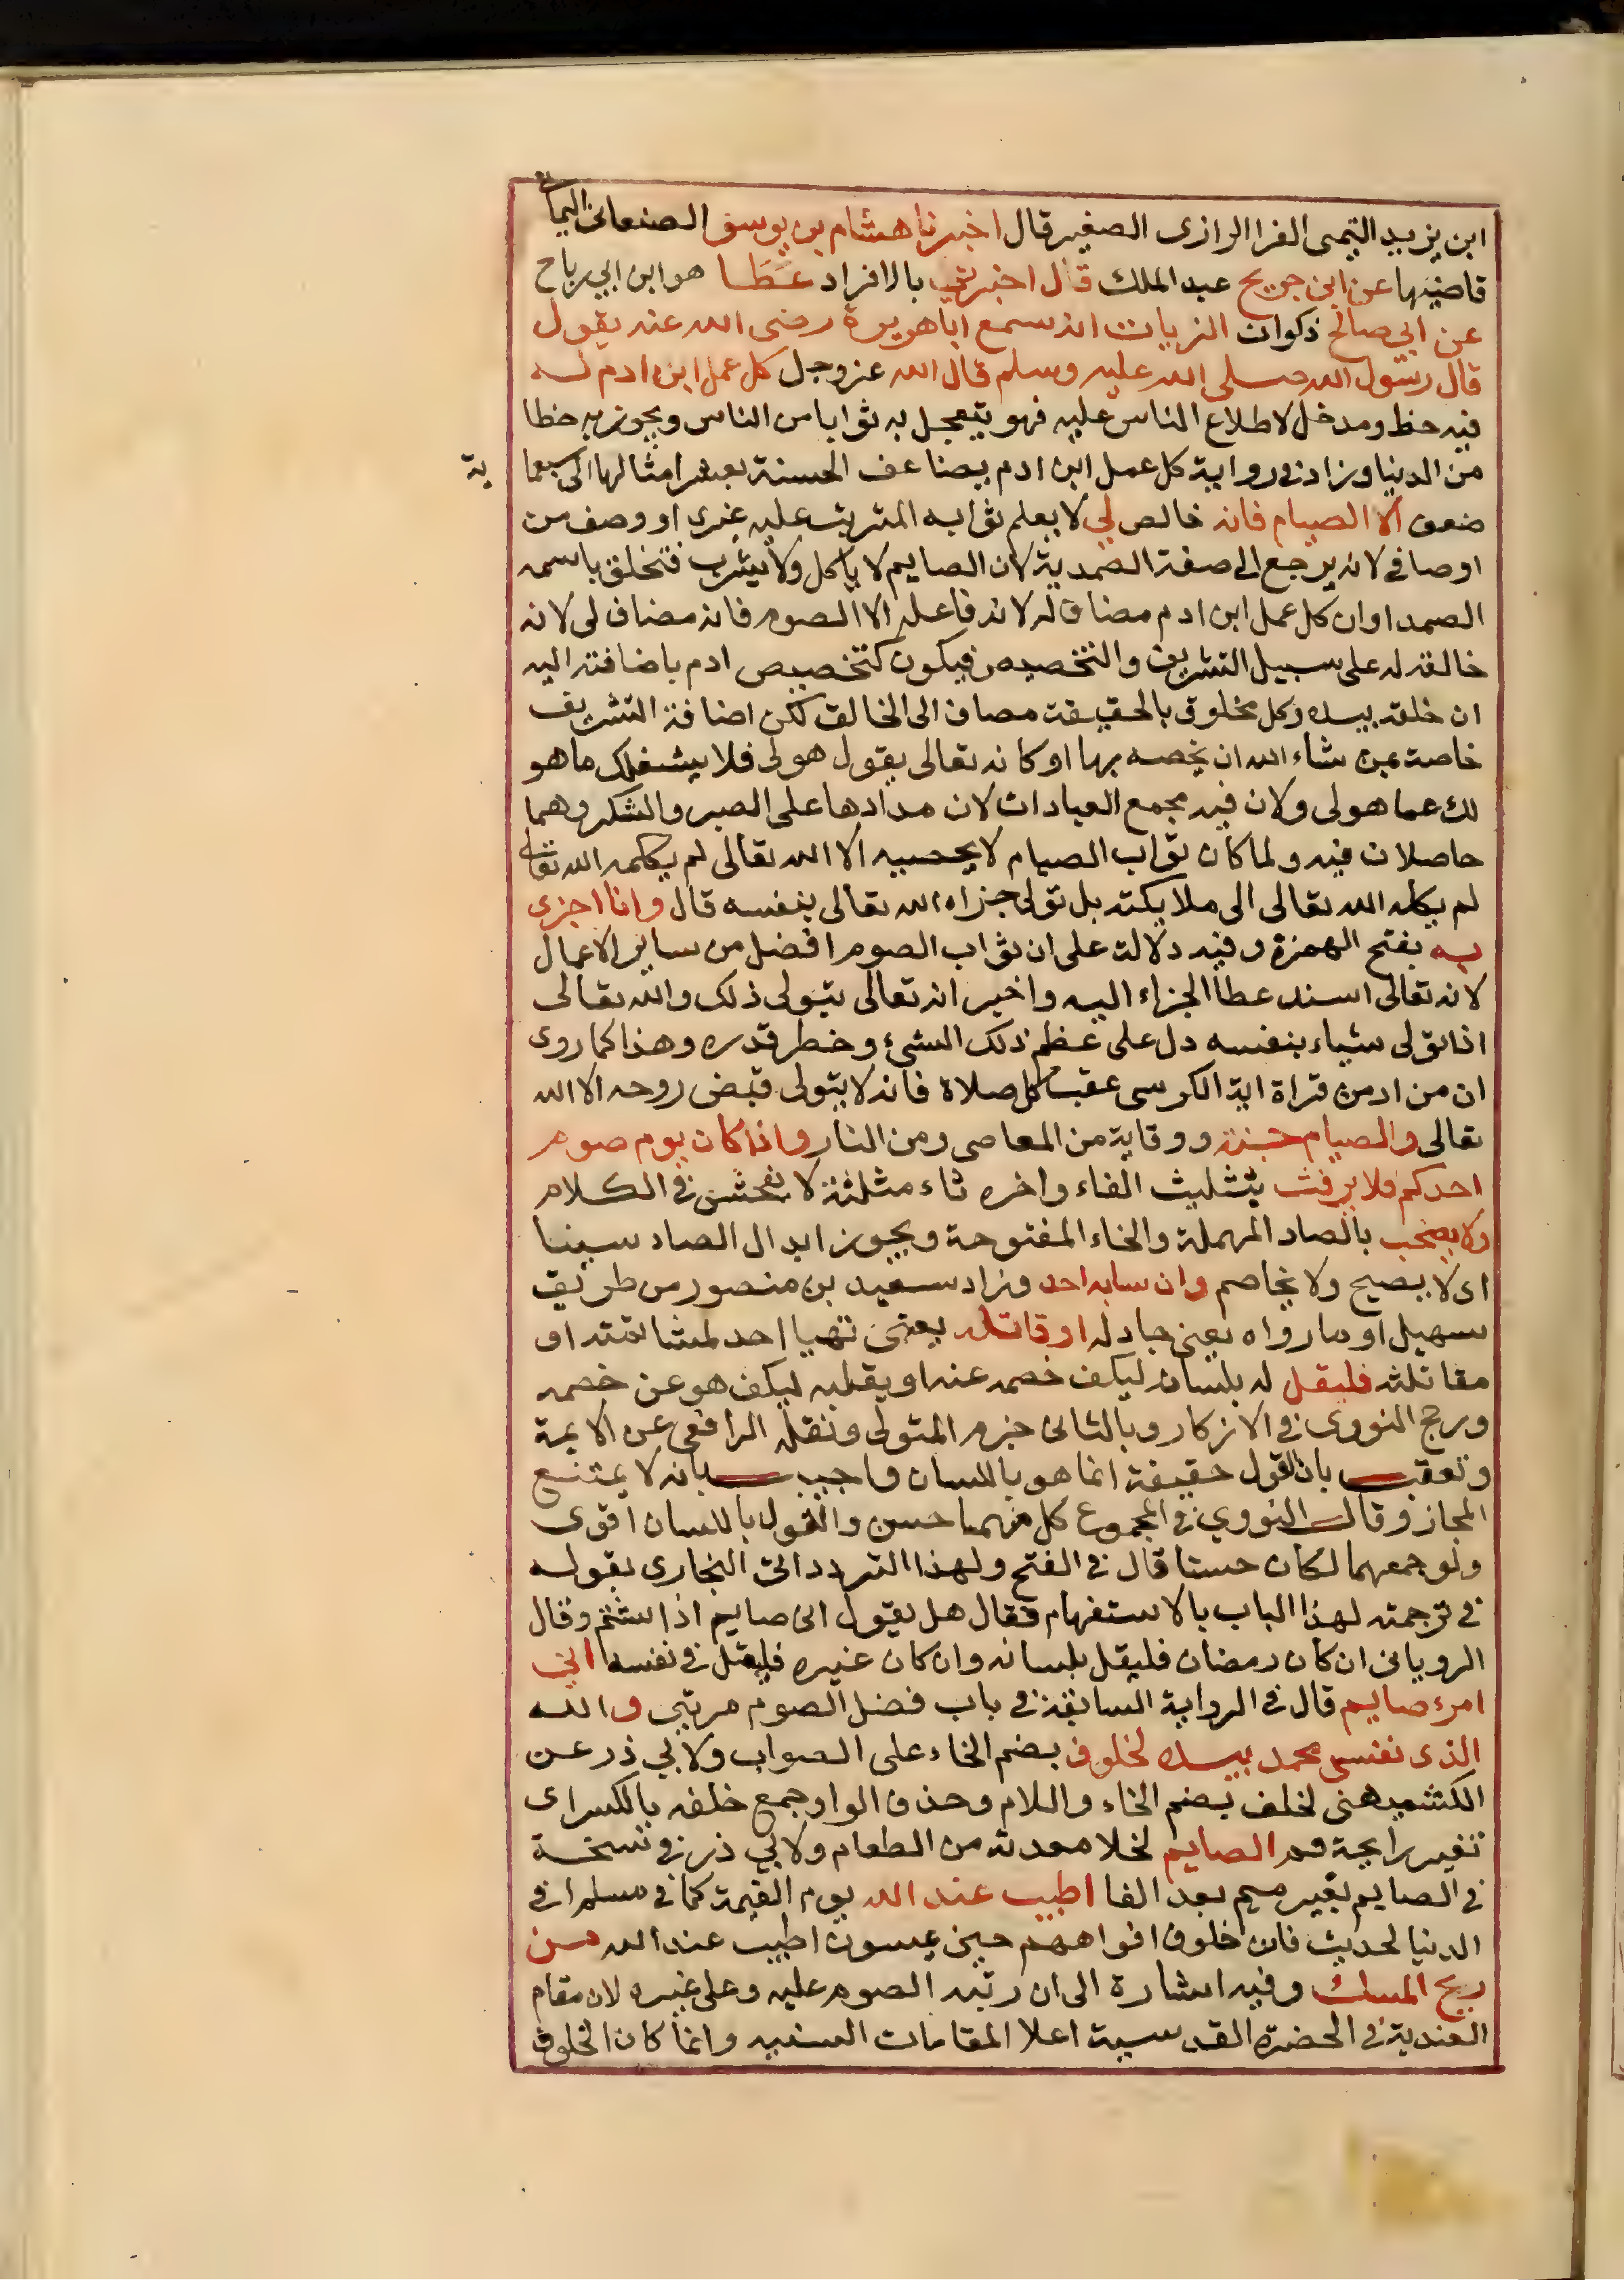 ابن يزيد التيمى الفرا الرازى الصغير قال اخبرنا هشام بن يوسف الصنعانى اليمانى
قاضيها عن ابن جريج عبد الملك قال اخبرنى بالافراد عَطَا هو ابن ابي رباح
عن ابي صالح ذكوان الزيات انه سمع اباهريرة رضى الله عنه يقول
قال رسول الله صلى الله عليه وسلم قال الله عز وجل كل عمل ابن ادم له
فيه حظ ومدخل لاطلاع الناس عليه فهو يتعجل به ثوابا من الناس ويجوز به حظا
من الدنيا وزاد فى رواية كل عمل ابن ادم يضاعف الحسنة بعشر امثالها الى سبعماية
ضعف الا الصيام فانه خالص لي لا يعلم ثوابه المترتب عليه غيرى او وصف من
اوصافى لانه يرجع الى صفة الصمدية لان الصايم لا ياكل ولا يشرب فتخلق باسمه
الصمد او ان كل عمل ابن ادم مضاف له لانه فاعله الا الصوم فانه مضاف لى لانه
خالقه له على سبيل التشريف والتخصيص فيكون كتخصيص ادم باضافته اليه
ان خلقه بيده وكل مخلوق بالحقيقة مضاف الى الخالق لكن اضافة التشريف
خاصة بمن شاء الله ان يخصه بها او كانه تعالى يقول هو لى فلا يشغلك ما هو
لك عما هو لى ولان فيه مجمع العبادات لان مدارها على الصبر والشكر وهما
حاصلان فيه ولما كان ثواب الصيام لا يحصيه الا الله تعالى لم يكلمه الله تعالى
لم يكله الله تعالى الى ملايكته بل تولى جزاه الله تعالى بنفسه قال وانا اجزى
به بفتح الهمزة وفيه دلالة على ان ثواب الصوم افضل من ساير الاعمال
لانه تعالى اسند عطا الجزاء اليه واخبر انه تعالى يتولى ذلك والله تعالى
اذا تولى شياء بنفسه دل على عظم ذلك الشئ وخطر قدره وهذا كما روى
ان من ادمن قراة اية الكرسى عقب كل صلاة فانه لا يتولى قبض روحه الا الله
تعالى والصيام جنة ووقاية من المعاصى ومن النار واذا كان يوم صوم
احدكم فلا يرفث بتثليث الفاء واخره ثاء مثلثة لا يفحش فى الكلام
ولا يصخب بالصاد المهملة والخاء المفتوحة ويجوز ابدال الصاد سينا
اى لا يصيح ولا يخاصم وان سابه احد وزاد سعيد بن منصور من طريق
سهيل او ماراه يعنى جادله او قاتله يعنى تهيا احد لمشاتمته او
مقاتلته فليقل له بلسانه ليكف خصمه عنه او بقلبه ليكف هو عن خصمه
ورجح النووى فى الاذكار وبالثانى جزم المتولى ونقله الرافعى عن الايمة
وتعقب بان القول حقيقة انما هو باللسان واجيب بانه لا يمتنع
المجاز وقال النووي فى المجموع كل منهما حسن والقول باللسان اقوى
ولو جمعهما لكان حسنا قال فى الفتح ولهذا التردد اتى البخارى بقوله
فى ترجمته لهذا الباب بالاستفهام فقال هل يقول انى صايم اذا شتم وقال
الرويانى ان كان رمضان فليقل بلسانه وان كان غيره فليقل فى نفسه اني
امرء صايم قال فى الرواية السابقة فى باب فضل الصوم مرتين والله
الذى نفسى محمد بيده لخلوف بضم الخاء على الصواب ولابي ذر عن
الكشميهنى لخلف بضم الخاء واللام وحذف الواو جمع خلفه بالكسر اى
تغير رايحة فم الصايم لخلا معدته من الطعام ولابي ذر فى نسخة
فى الصايم بغير ميم بعد الفا اطيب عند الله يوم القيمة كما فى مسلم او فى
الدنيا لحديث فان خلوف افواههم حين يمسون اطيب عند الله من
ريح المسك وفيه اشارة الى ان رتبة الصوم علية وعلى غيره لان مقام
العندية فى الحضرة القدسية اعلا المقامات السنيه وانما كان الخلوف